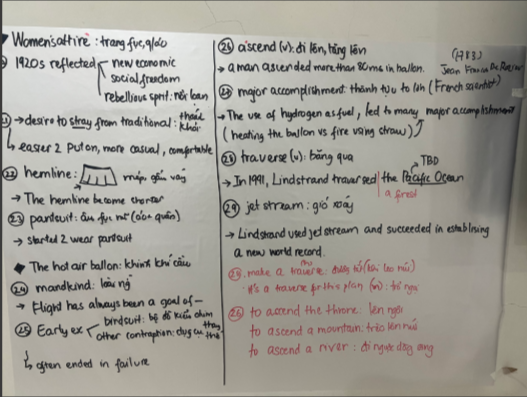 Women's attire : trang fục, q/áo
1920s reflected
new economic
social freedom
rebellious spirit : nổi loạn
→ desire to stray from traditional : thoát khỏi
↳ easier 2 put on, more casual, comfortable
(22) hemline : mép, gấu váy
→ The hemline become shorter
(23) pantsuit : âu fục nữ (áo + quần)
→ started 2 wear pantsuit
◆ The hot air ballon : khinh khí cầu
(24) mandkind : loài ng
→ Flight has always been a goal of —
(25) Early ex
birdsuit : bộ đồ kiểu chim
other contraption : dụng cụ thay thế
↳ often ended in failure
(26) ascend (v) : đi lên, tăng lên
(1783)
→ a man ascended more than 80ms in ballon.
Jean Francis De
major accomplishment : thành tựu to lớn (French scientist)
→ The use of hydrogen as fuel, led to many major accomplishment
(heating the ballon vs fire using straw)
(28) traverse (v) : băng qua
TBD
→ In 1991, Lindstrand traversed the Pacific Ocean
a forest
(29) jet stream : gió xoáy
→ Lindstrand used jet stream and succeeded in establising
a new world record.
make a traverse
it's a traverse for this plan (n) : trở ngại
(26) to ascend the throne : lên ngôi
to ascend a mountain : trèo lên núi
to ascend a river : đi ngược dòng sông